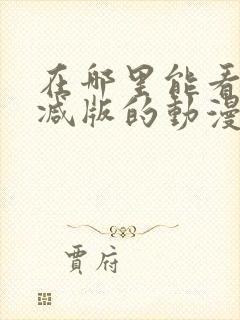 在哪里能看
减版的動漫
賈府